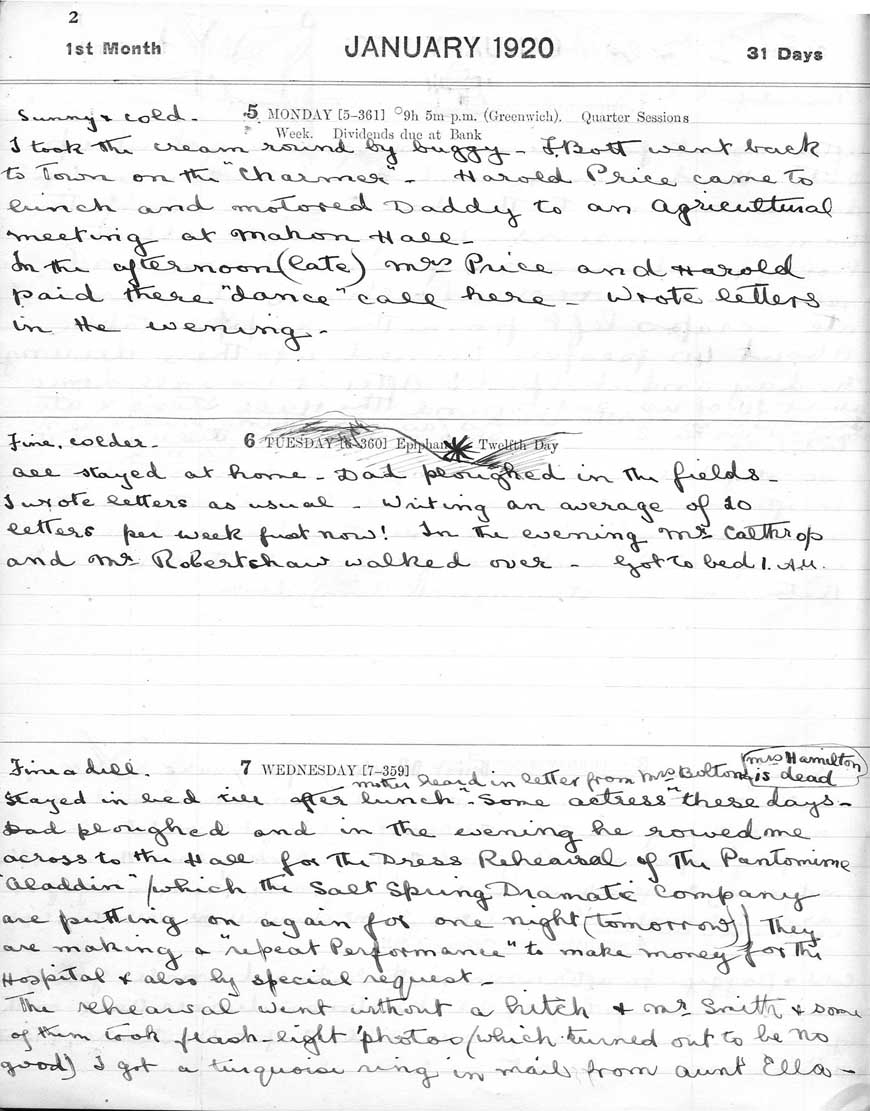 2
1st Month JANUARY 1920 31 Days
Sunny & cold. 5 MONDAY [5-361] 9h 5m p.m. (Greenwich). Quarter Sessions
Week. Dividends due at Bank
I took the cream round by buggy - F. Bott went back
to Town on the "Charmer" - Harold Price came to
lunch and motored Daddy to an Agricultural
meeting at Mahon Hall -
In the afternoon (late) Mrs Price and Harold
paid there "dance" call here - Wrote letters
in the evening -
Fine, colder - 6 TUESDAY [6-360] Epiphany Twelfth Day
All stayed at home - Dad ploughed in the fields -
I wrote letters as usual - Writing an average of 20
letters per week just now! In the evening Mr Calthrop
and Mr Robertshaw walked over - Got to bed 1. A.M.
Fine & dull. 7 WEDNESDAY [7-359]
Mother heard in letter from Mrs Bolton Mrs Hamilton is dead
Stayed in bed till after lunch - "Some actress" these days -
Dad ploughed and in the evening he rowed me
across to the Hall for the Dress Rehearsal of The Pantomime
"Aladdin" (which the Salt Spring Dramatic Company
are putting on again for one night (tomorrow)) They
are making a "repeat Performance" to make money for the
Hospital & also by special request -
The rehearsal went without a hitch & Mr Smith & some
of them took flash-light 'photos (which turned out to be no
good) I got a turquoise ring in mail from Aunt Ella -